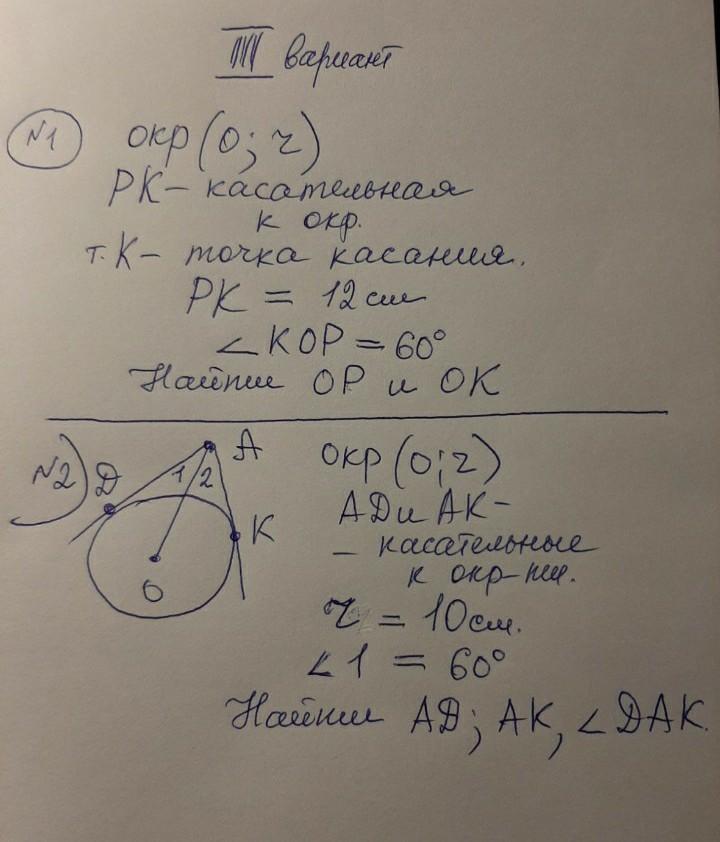 III вариант
№1 окр(О; r)
РК – касательная
к окр.
т. К – точка касания.
РК = 12 см
∠КОР = 60°
Найти ОР и ОК
№2 окр(О; r)
D
1 2
A
K
O
AD и AK –
– касательные
к окр-ти.
r = 10 см.
∠1 = 60°
Найти AD; AK, ∠DAK.